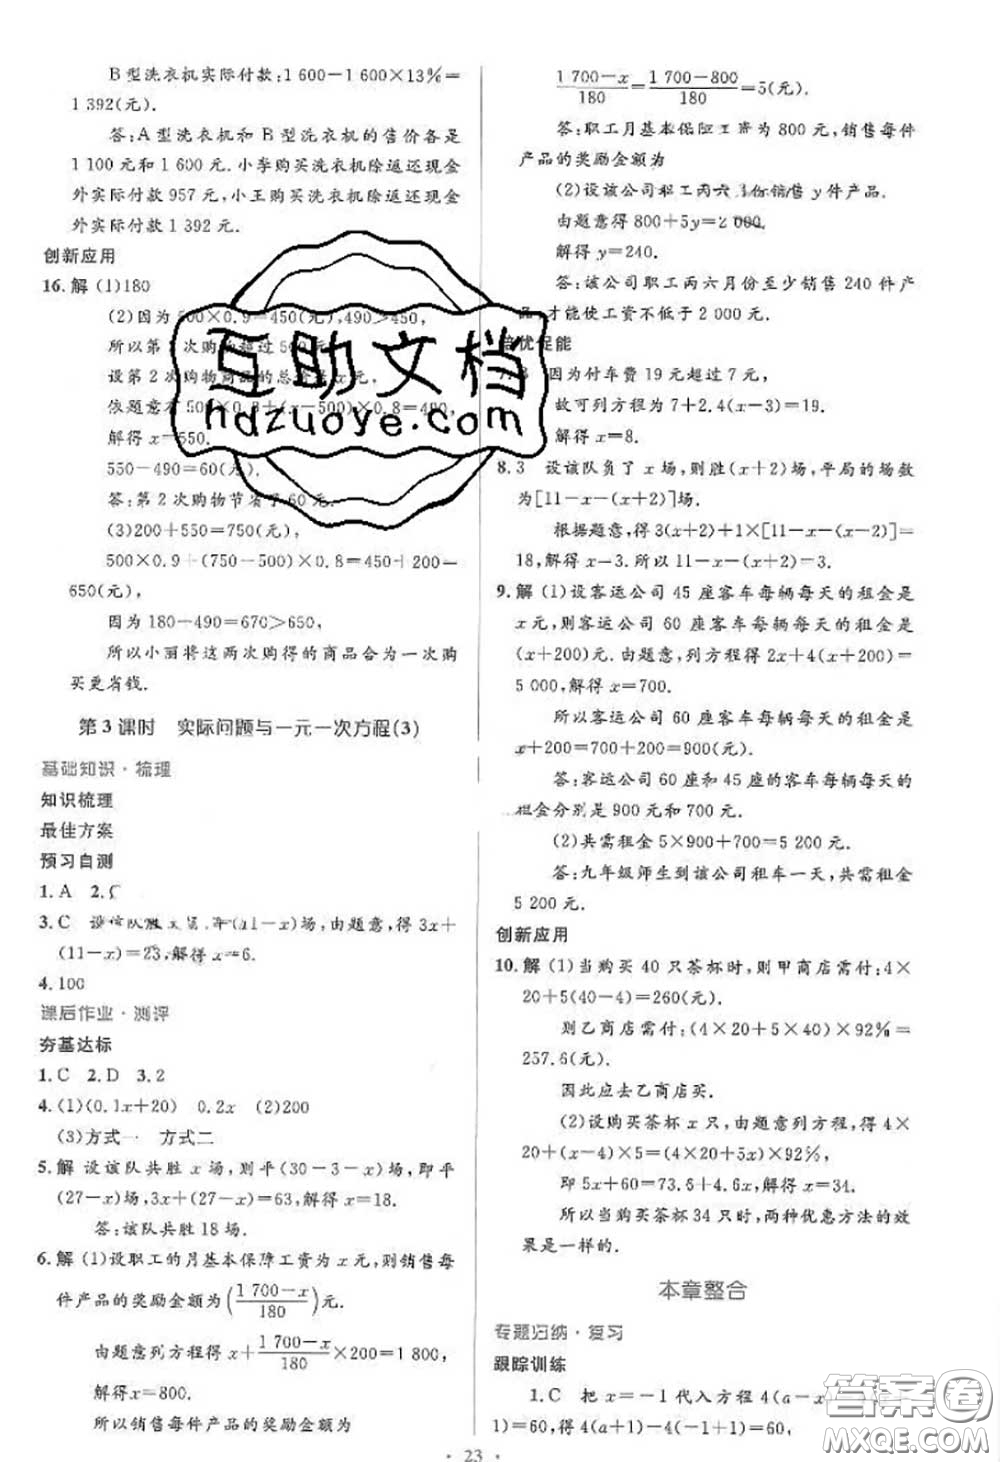 B型洗衣机实际付款:1 600-1 600×13%=
1 392(元).
答:A型洗衣机和B型洗衣机的售价各是
1 100元和1 600元.小李购买洗衣机除返还现金
外实际付款957元,小王购买洗衣机除返还现金
外实际付款1 392元.
创新应用
16.解 (1)180
(2)因为500×0.9=450(元),490>450,
所以第2次购物超过500
设第2次购物商品的总 x元,
依题意有500×0.9+(x-500)×0.8=490,
解得x=550.
550-490=60(元).
答:第2次购物节省了60元.
(3)200+550=750(元),
500×0.9+(750-500)×0.8=450+200=
650(元),
因为180-490=670>650,
所以小丽将这两次购得的商品合为一次购
买更省钱.
第3课时 实际问题与一元一次方程(3)
基础知识·梳理
知识梳理
最佳方案
预习自测
1.A 2.C
3.C 设该队胜 (11-x)场,由题意,得3x+
(11-x)=23,解得x=6.
4.100
课后作业·测评
夯基达标
1.C 2.D 3.2
4.(1)(0.1x+20) 0.2x (2)200
(3)方式一 方式二
5.解 设该队共胜x场,则平(30-3-x)场,即平
(27-x)场,3x+(27-x)=63,解得x=18.
答:该队共胜18场.
6.解 (1)设职工的月基本保障工资为x元,则销售每
件产品的奖励金额为(1 700-x/180)元.
由题意列方程得x+1 700-x/180×200=1 800,
解得x=800.
所以销售每件产品的奖励金额为
1 700-x/180=1 700-800/180=5(元).
答:职工月基本保障工资为800元,销售每件
产品的奖励金额为
(2)设该公司职工丙六月份销售y件产品.
由题意得800+5y=2 000.
解得y=240.
答:该公司职工丙六月份至少销售240件产
品,才能使工资不低于2 000元.
培优促能
7.8 因为付车费19元超过7元,
故可列方程为7+2.4(x-3)=19.
解得x=8.
8.3 设该队负了x场,则胜(x+2)场,平局的场数
为[11-x-(x+2)]场.
根据题意,得3(x+2)+1×[11-x-(x-2)]=
18,解得x-3.所以11-x-(x+2)=3.
9.解 (1)设客运公司45座客车每辆每天的租金是
x元,则客运公司60座客车每辆每天的租金是
(x+200)元.由题意,列方程得2x+4(x+200)=
5 000,解得x=700.
所以客运公司60座客车每辆每天的租金为
x+200=700+200=900(元).
答:客运公司60座和45座的客车每辆每天的
租金分别是900元和700元.
(2)共需租金5×900+700=5 200元.
答:九年级师生到该公司租车一天,共需租金
5 200元.
创新应用
10.解 (1)当购买40只茶杯时,则甲商店需付:4×
20+5(40-4)=260(元).
则乙商店需付:(4×20+5×40)×92%=
257.6(元).
因此应去乙商店买.
(2)设购买茶杯x只,由题意列方程,得4×
20+(x-4)×5=(4×20+5x)×92%,
即5x+60=73.6+4.6x,解得x=34.
所以当购买茶杯34只时,两种优惠方法的效
果是一样的.
本章整合
专题归纳·复习
跟踪训练
1.C 把x=-1代入方程4(a-x
1)=60,得4(a+1)-4(-1+1)=60,
·23·
互助文档
hdzuoye.com
答案圈
MXQE.COM